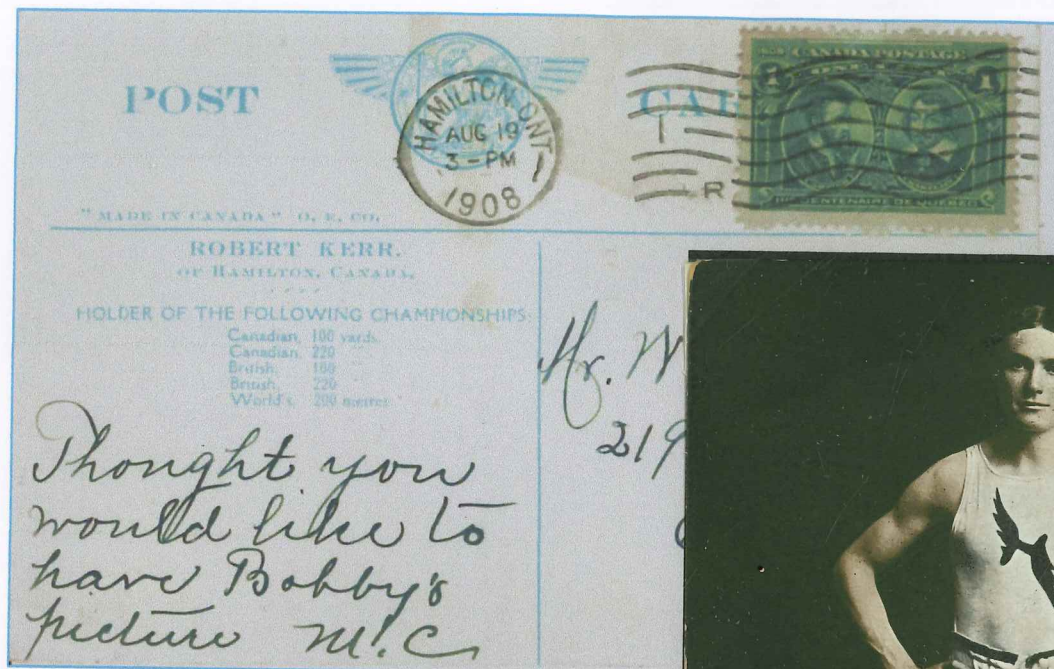 POST CAR
HAMILTON, ONT
AUG 19
3 - PM
1908
R
1608 CANADA POSTAGE
1 ONE 1
IIIe CENTENAIRE DE QUÉBEC
"MADE IN CANADA" O. E. CO.
ROBERT KERR,
OF HAMILTON, CANADA,
HOLDER OF THE FOLLOWING CHAMPIONSHIPS:
Canadian, 100 yards.
Canadian, 220
British, 100
British, 220
World's, 200 metres
Mr. W
219
Thought you
would like to
have Bobby's
picture M.C.